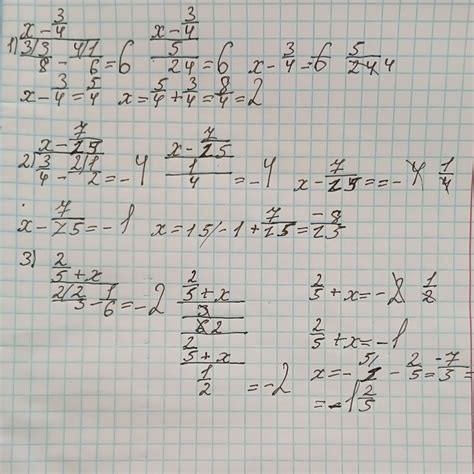 1) (x - 3/4) / (3/ 3/8 - 4/ 1/6) = 6   (x - 3/4) / (5/24) = 6   x - 3/4 = 6 · 5/24 4
x - 3/4 = 5/4   x = 5/4 + 3/4 = 8/4 = 2
2) (x - 7/15) / (3/4 - 2/ 1/2) = -4   (x - 7/15) / (1/4) = -4   x - 7/15 = = -4 1/4
x - 7/15 = -1   x = 15/ -1 + 7/15 = -8/15
3) (2/5 + x) / (2/ 2/3 - 1/6) = -2   (2/5 + x) / (3/6 2)   2/5 + x = -2 1/2
(2/5 + x) / (1/2) = -2   2/5 + x = -1
x = - 5/ 1 - 2/5 = -7/5 =
= -1 2/5